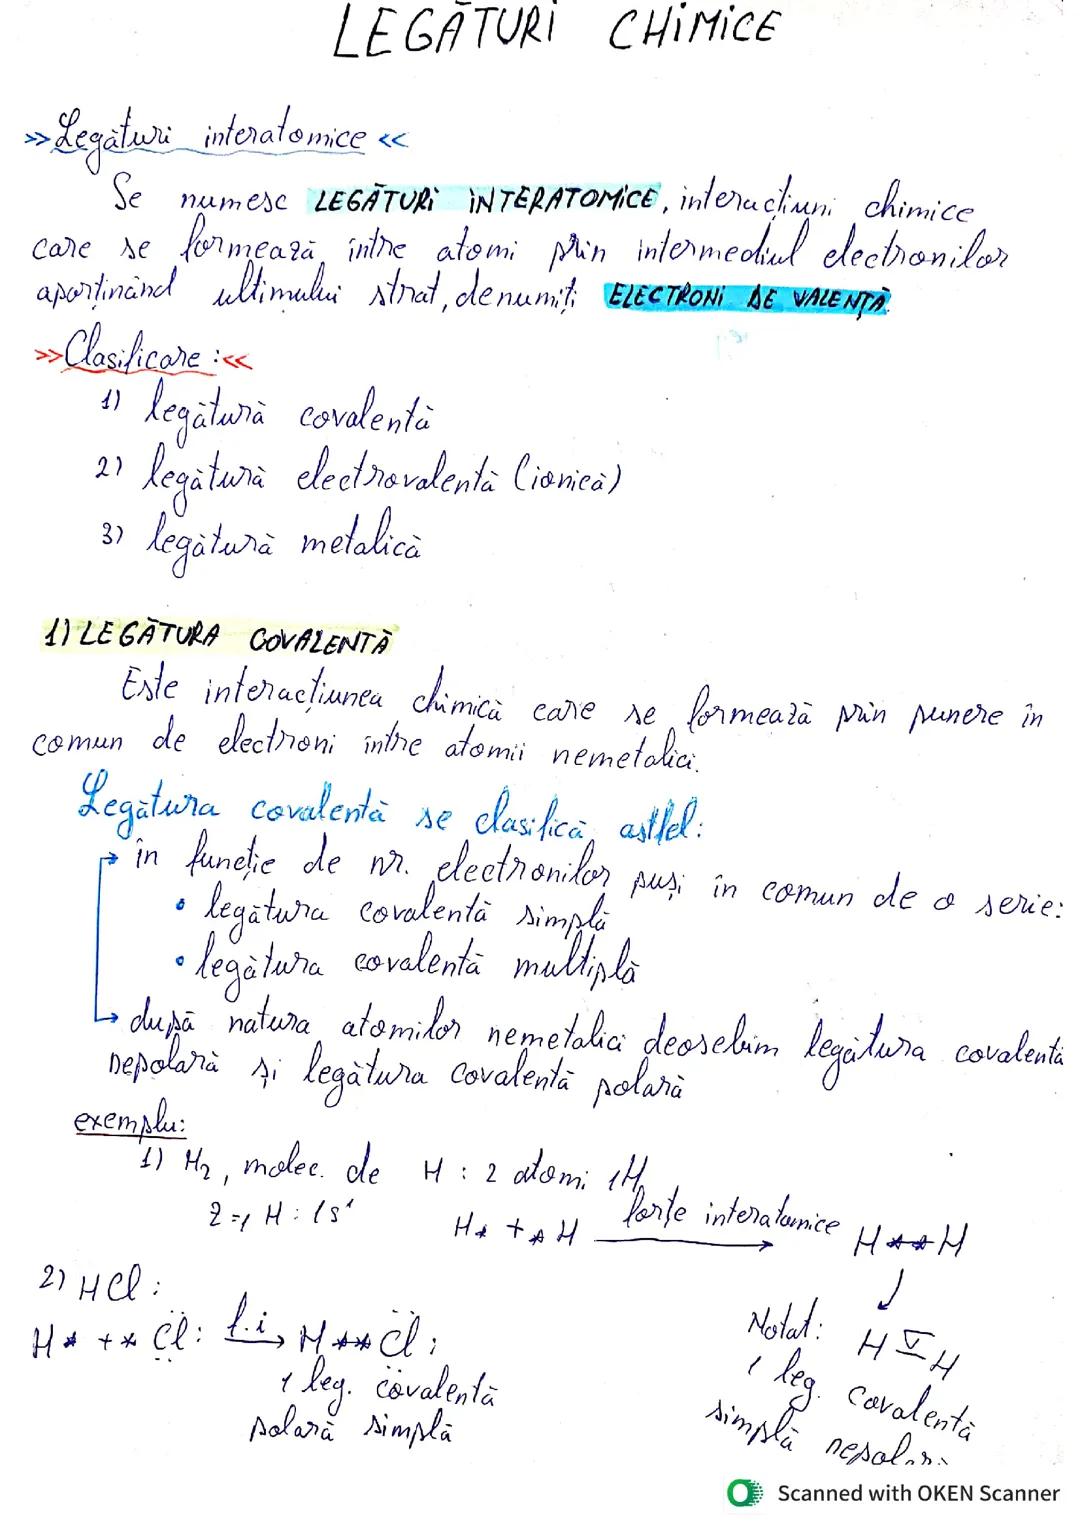 LEGĂTURI CHIMICE
>> Legături interatomice <<
Se numesc LEGĂTURI INTERATOMICE, interacțiuni chimice
care se formează între atomi prin intermediul electronilor
aparținând ultimului strat, denumiți ELECTRONI DE VALENȚĂ.
>> Clasificare: <<
1) legătură covalentă
2) legătură electrovalentă (ionică)
3) legătură metalică
1) LEGĂTURA COVALENTĂ
Este interacțiunea chimică care se formează prin punere în
comun de electroni între atomii nemetalici.
Legătura covalentă se clasifică astfel:
→ în funcție de nr. electronilor puși în comun de o serie:
• legătura covalentă simplă
• legătura covalentă multiplă
→ după natura atomilor nemetalici deosebim legătura covalentă
nepolară și legătura covalentă polară
exemplu:
1) H₂, molec. de H : 2 atomi ₁H
Z=1 H: 1s¹
H* + *H forțe interatomice → H**H
Notat: H V H
1 leg. covalentă
simplă nepolară
2) HCl:
H* + *Cl: f.i → H**Cl:
1 leg. covalentă
polară simplă
Scanned with OKEN Scanner